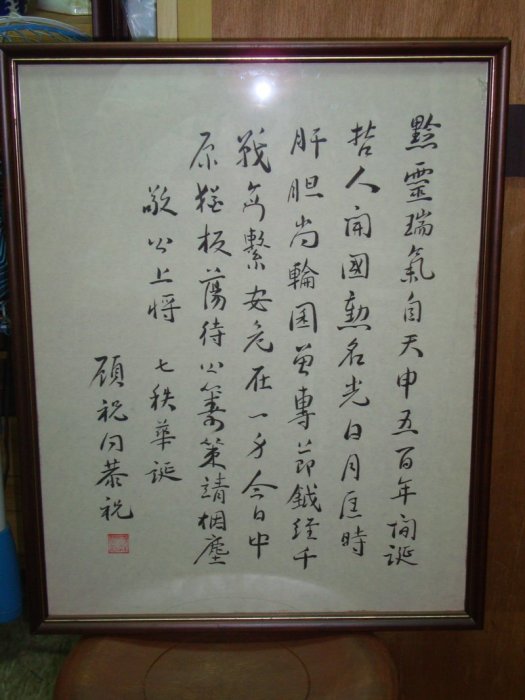 黔靈瑞氣自天申五百年間誕
哲人開國勲名光日月匡時
肝胆尚輪囷曾專節鉞經千
戰每繫安危在一身今日中
原猶板蕩待公籌策靖烟塵
敬公上將 七秩華誕
顧祝同恭祝